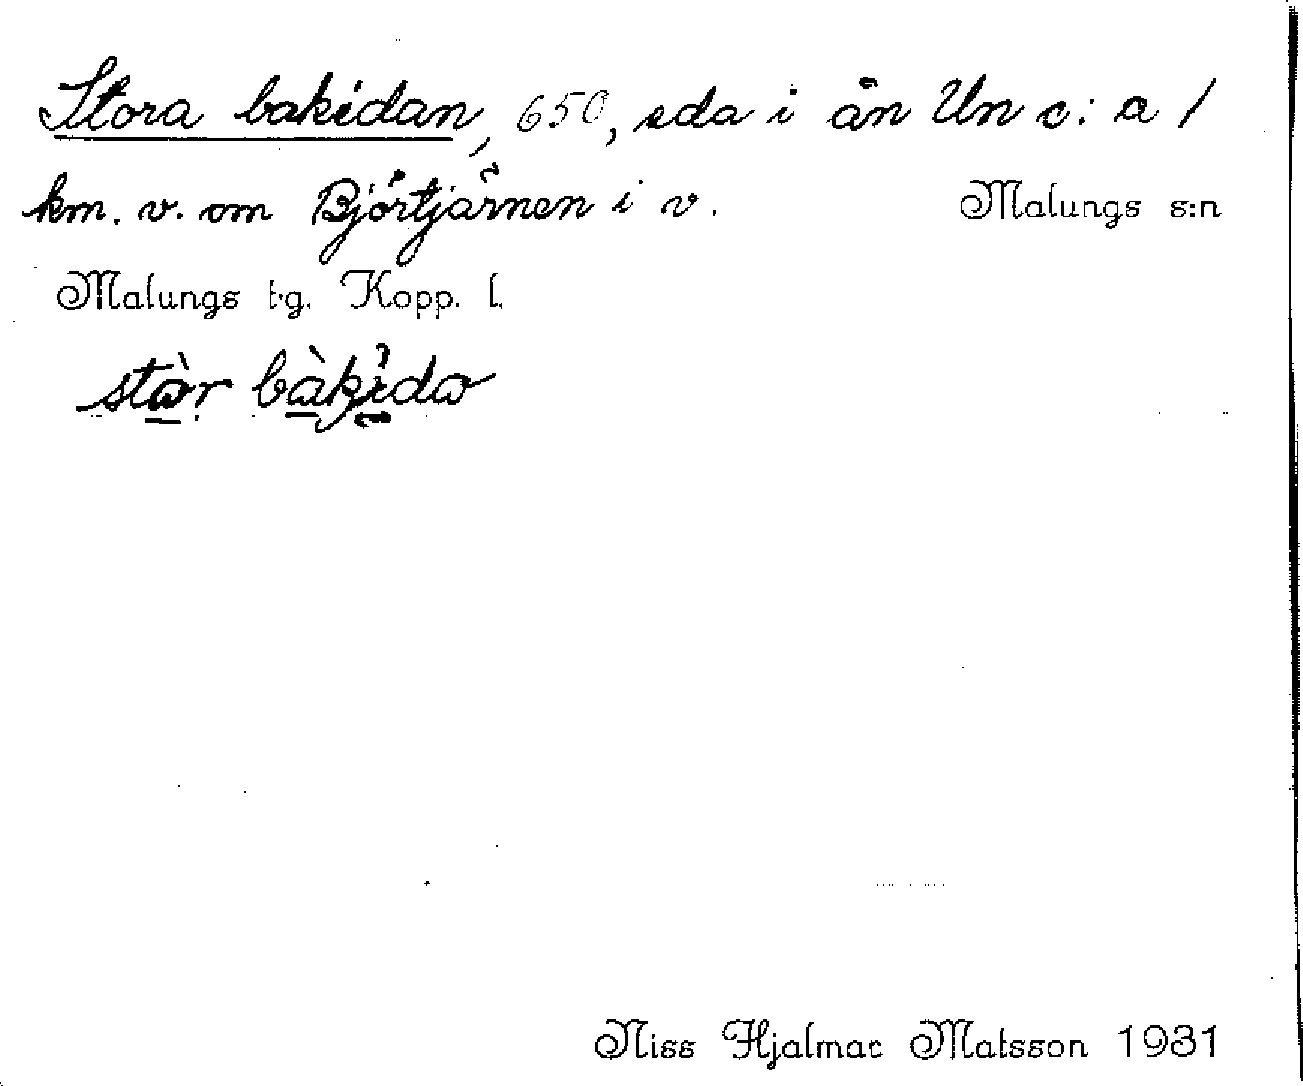 Stora bakidan, 650, eda i ån Un c:a 1
km. v. om Björtjärnen i v. Malungs s:n
Malungs tg. Kopp. l.
stàr bàkìda
Niss Hjalmar Matsson 1931